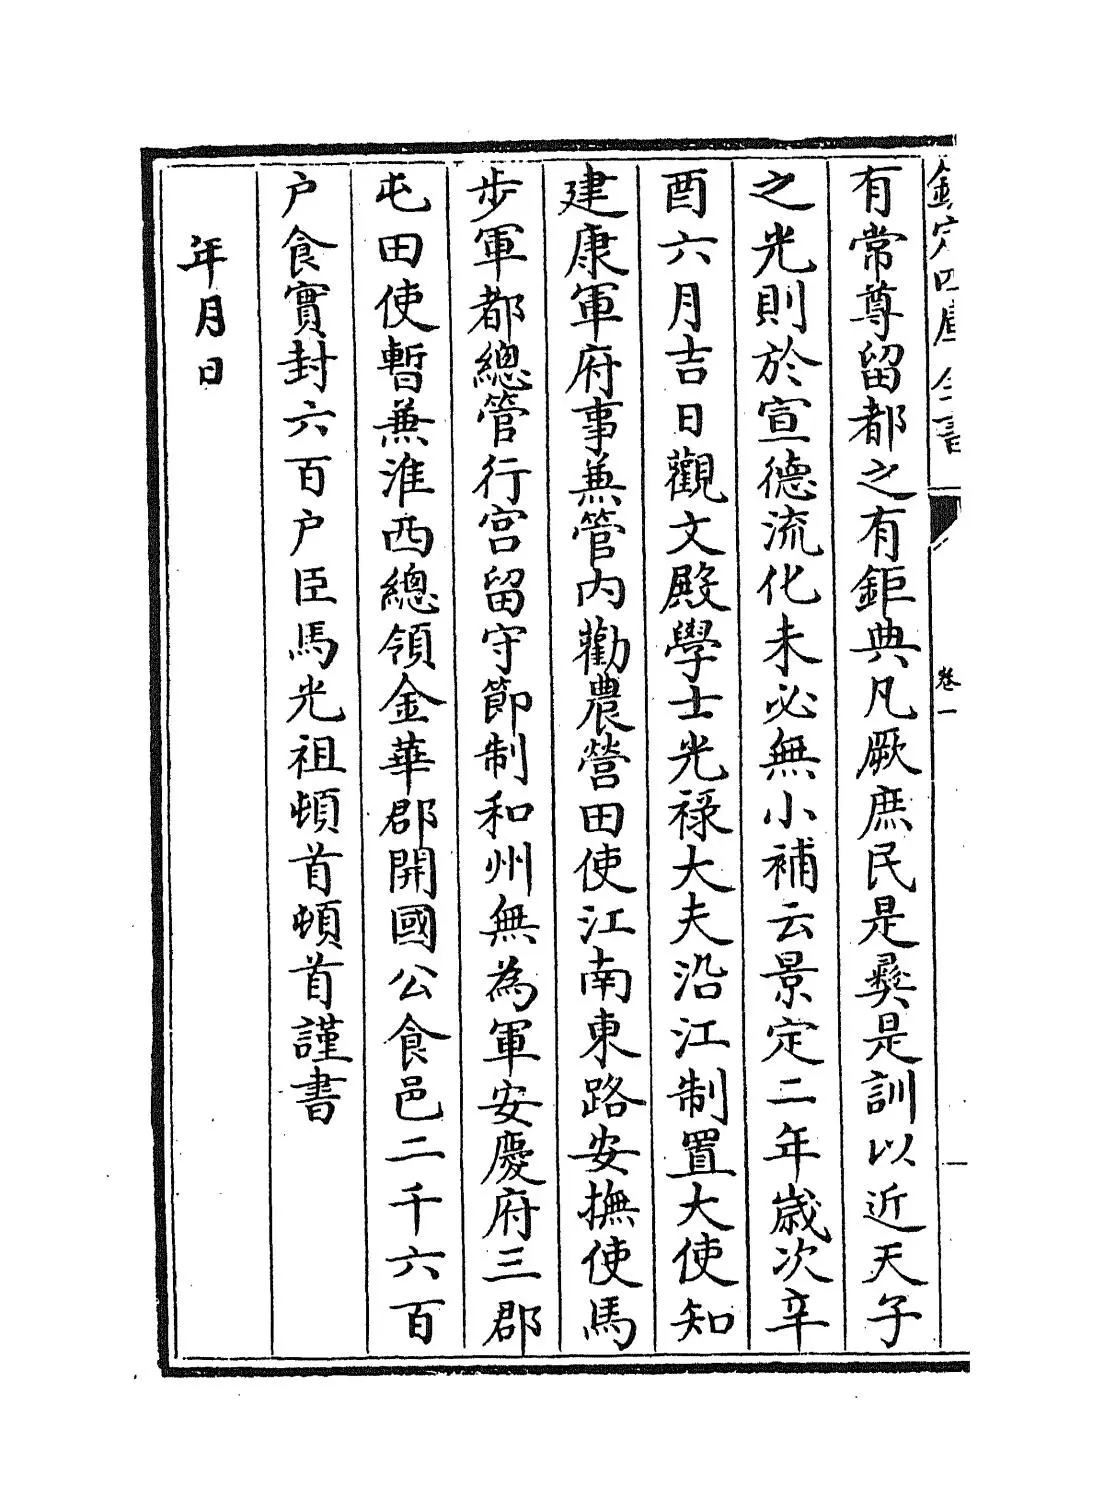 欽定四庫全書
卷一
有常尊留都之有鉅典凡厥庶民是彛是訓以近天子
之光則於宣德流化未必無小補云景定二年歲次辛
酉六月吉日觀文殿學士光祿大夫沿江制置大使知
建康軍府事兼管內勸農營田使江南東路安撫使馬
步軍都總管行宮留守節制和州無為軍安慶府三郡
屯田使暫兼淮西總領金華郡開國公食邑二千六百
户食實封六百户臣馬光祖頓首頓首謹書
年月日